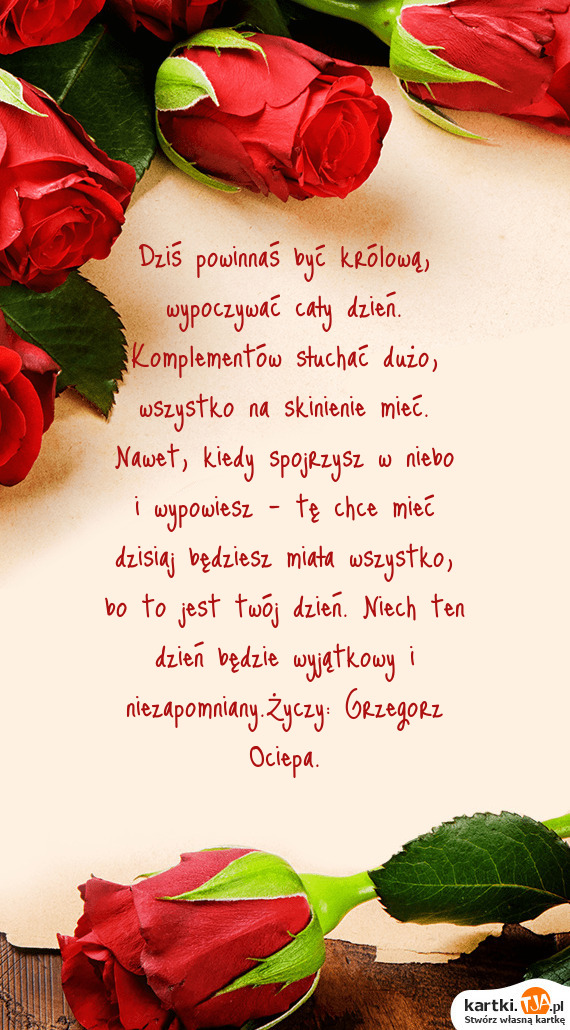 Dziś powinnaś być królową,
wypoczywać cały dzień.
Komplementów słuchać dużo,
wszystko na skinienie mieć.
Nawet, kiedy spojrzysz w niebo
i wypowiesz - tę chce mieć
dzisiaj będziesz miała wszystko,
bo to jest twój dzień. Niech ten
dzień będzie wyjątkowy i
niezapomniany.Życzy: Grzegorz
Ociepa.
kartki.TJA.pl
Stwórz własną kartkę